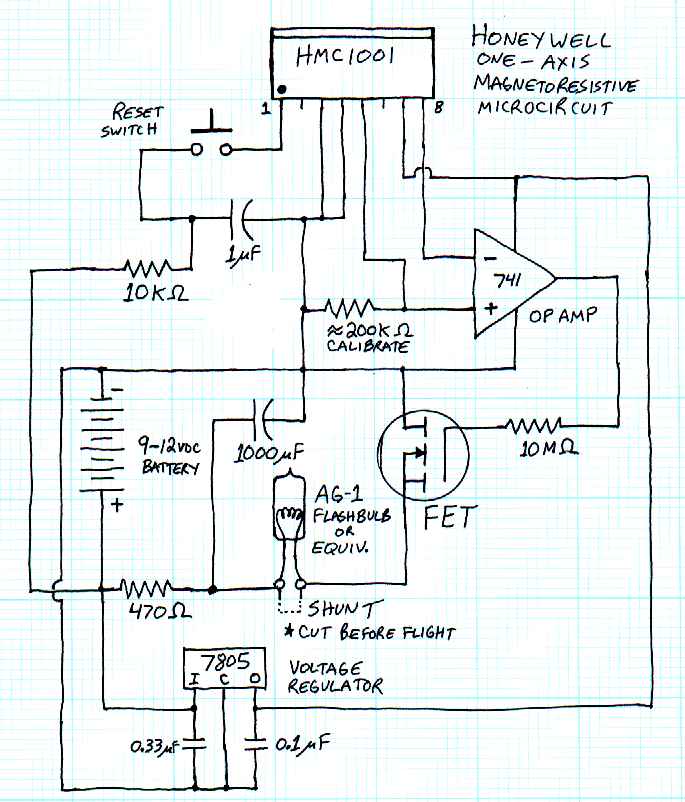 HMC1001
HONEYWELL
ONE-AXIS
MAGNETORESISTIVE
MICROCIRCUIT
1
8
RESET
SWITCH
1μF
10KΩ
≈200KΩ
CALIBRATE
-
741
+
OP AMP
-
9-12VDC
BATTERY
+
1000μF
10MΩ
FET
AG-1
FLASHBULB
OR
EQUIV.
470Ω
SHUNT
* CUT BEFORE FLIGHT
7805
I C O
VOLTAGE
REGULATOR
0.33μF
0.1μF